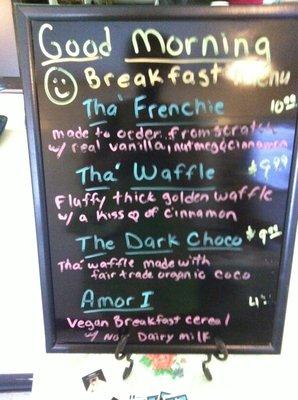 Good Morning
Breakfast Menu
Tha' Frenchie 10.99
made to order, from scratch
w/ real vanilla, nutmeg & cinnamon
Tha' Waffle $9.99
Fluffy thick golden waffle
w/ a kiss ♡ of cinnamon
The Dark Choco $9.99
Tha' waffle made with
fair trade organic coco
Amor I
Vegan Breakfast cereal
w/ Non Dairy milk